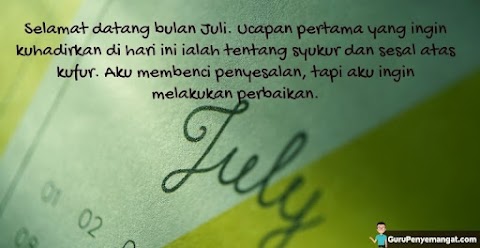 Selamat datang bulan Juli. Ucapan pertama yang ingin
kuhadirkan di hari ini ialah tentang syukur dan sesal atas
kufur. Aku membenci penyesalan, tapi aku ingin
melakukan perbaikan.
July
01
02
03
GuruPenyemangat.com